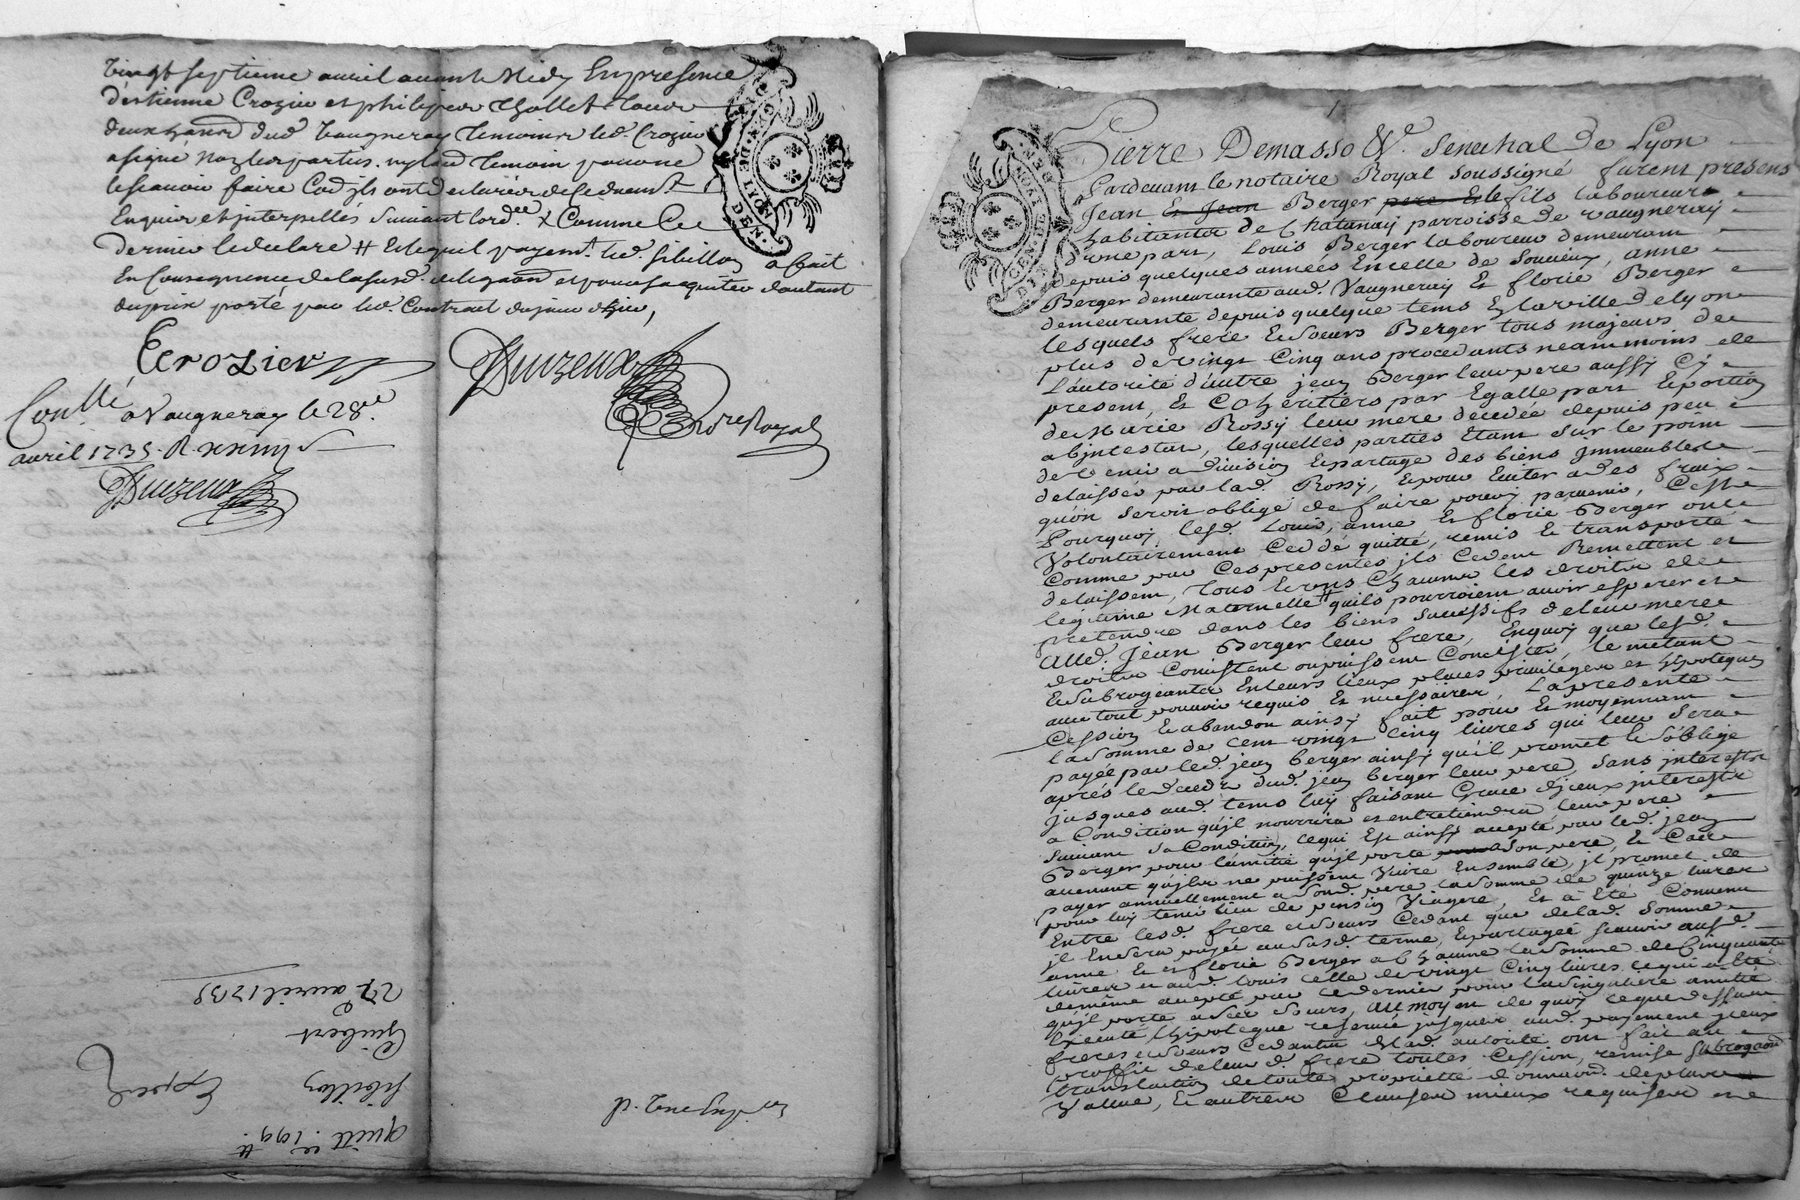 Vingt septieme avril avant Midy En presence
d'estienne Crozier et philipes Thollet
dud Vaugneray temoins led. Crozier
a signé non les parties ny led temoin pour ne
le scavoir faire
Enquis et interpellés suivant lord.ce x Comme led
dernier le declare # Et lequel payem.t led. Sibillon a fait
En Consequence de la susd. delegaon et pour s'acquiter d'autant
du prix porté par led. Contract du jour d'hier,
E Crozier
Nore Royal
Con.llé a Vaugneray le 28.e
avril 1735. R.
27 avril 1735
Guibert
Sibillon
Exped
quitt.ce 199.#
GEN. DE LYON
GEN. DE LYON
Pierre Demasso &.c Senechal de Lyon
Pardevant le notaire Royal soussigné furent presens
Jean Et Jean Berger pere Et le fils laboureurs
habitants de Chatanay parroisse de Vaugneray
d'une part, Louis Berger laboureur demeurant
depuis quelques années En celle de Soucieux, anne
Berger demeurante aud Vaugneray Et florie Berger
demeurante depuis quelque tems En la ville de lyon
lesquels frere Et soeurs Berger tous majeurs de
plus de vingt Cinq ans procedants neammoins de
L'autorité d'autre jean Berger leur pere aussy Cy
present, Et Coheritiers par Egalle part Et portion
de Marie Rossy leur mere decedée depuis peu
abintestat, lesquelles parties Etant sur le point
de venir a division Et partage des biens Immeubles
delaissés par lad. Rossy, Et pour Eviter a des fraix
qu'on seroit obligé de faire pour y parvenir, C'est
Pourquoy lesd. Louis, anne Et florie Berger ont
Volontairement Ceddé quitté, remis Et transporté
Comme par Ces presentes ils Cedent Remettent et
delaissent, tous Et uns Chacuns les droits de
legitime Maternelle # quils pourroient avoir esperer et
pretendre dans les biens successifs de leur mere
Aud. Jean Berger leur frere, En quoy que lesd.
droits Consistent ou puissent Consister, le metant
Et subrogeants En leurs lieux places privileges et hypoteques
avec tout pouvoir requis Et necessaires, La presente
Cession Et abandon ainsy fait pour Et moyennant
la somme de cent vingt Cinq livres qui leur sera
payée par led. jean berger ainsy qu'il promet Et s'oblige
aprés le deceds dud. jean berger leur pere, sans interests
jusques aud. tems luy faisant Grace d'jceux interests
a Condition qu'il nourrira et entretiendra leur pere
suivant sa Condition, ce qui Est ainsy accepté par led. jean
Berger pour l'amitié qu'il porte a son pere, Et Cas
avenant qu'ils ne puissent vivre Ensemble, il promet de
payer annuellement a sond. pere la somme de quinze livres
pour luy tenir lieu de pension Viagere, Et a Eté Convenu
Entre lesd. frere et soeurs Cedant que de lad. somme
jl En sera payée au susd. terme, Et partagée scavoir ausd.
anne Et florie Berger a Chacune la somme de Cinquante
livres et aud. Louis celle de vingt Cinq livres ce qui a Eté
de même accepté par ce dernier pour la singuliere amitié
qu'jl porte a ses soeurs, Au moyen de quoy ce que dessus
Executé l'hipoteque reservée jusques aud. payement jceux
freres et soeurs Cedants de lad. autorité ont fait au
proffit de leurd. frere toutes Cession, remise subrogaon
translation de toute proprieté d'emmaon. de plus
Vallue, Et autres Clauses mieux requises Et